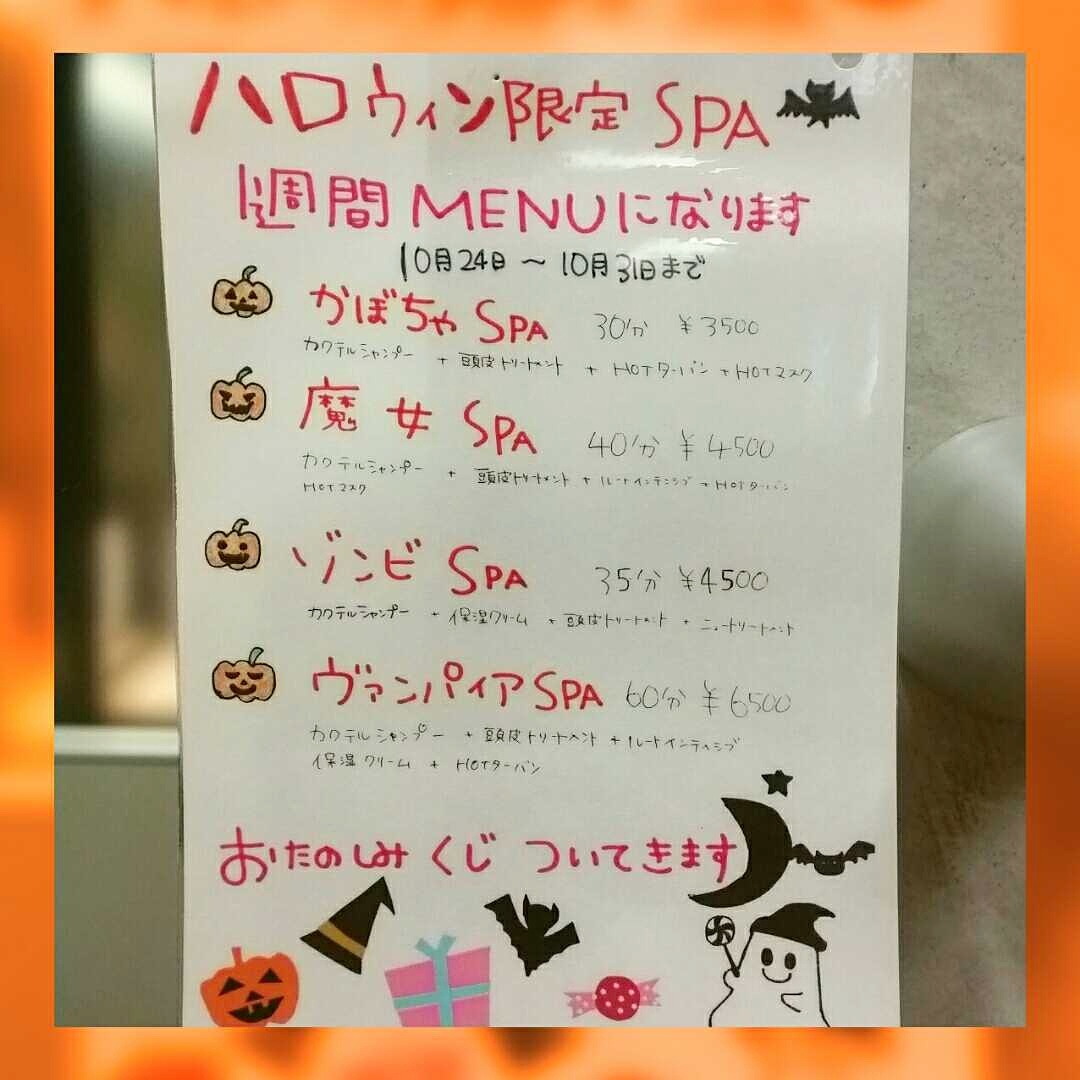 ハロウィン限定 SPA
1週間 MENUになります
10月24日 ～ 10月31日まで
かぼちゃ SPA 30分 ¥3500
カクテルシャンプー + 頭皮トリートメント + HOTターバン + HOTマスク
魔女 SPA 40分 ¥4500
カクテルシャンプー + 頭皮トリートメント + ルートインテンシブ + HOTターバン
HOTマスク
ゾンビ SPA 35分 ¥4500
カクテルシャンプー + 保湿クリーム + 頭皮トリートメント + ニュートリートメント
ヴァンパイア SPA 60分 ¥6500
カクテルシャンプー + 頭皮トリートメント + ルートインティシブ
保湿クリーム + HOTターバン
おたのしみくじ ついてきます